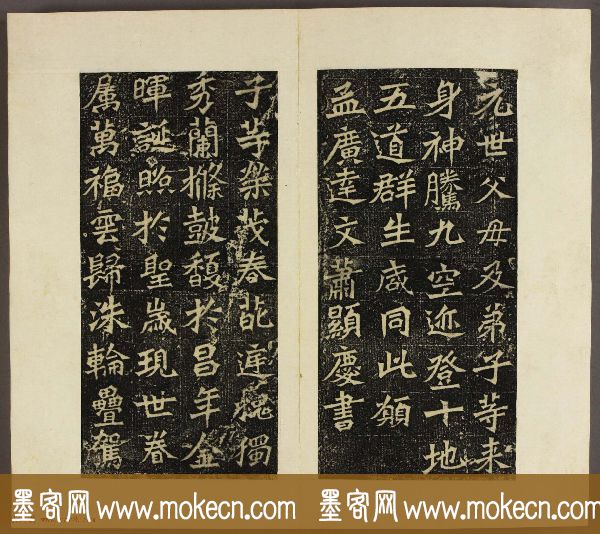 元世父母及弟子等来
身神騰九空迹登十地
五道群生咸同此願
孟廣達文蕭顯慶書
子等榮茂春葩庭槐獨
秀蘭條鼓馥於昌年金
暉誕照於聖歲現世眷
属萬福雲歸洙輪疊駕
墨客网 www.mokecn.com
墨客网 www.mokecn.com